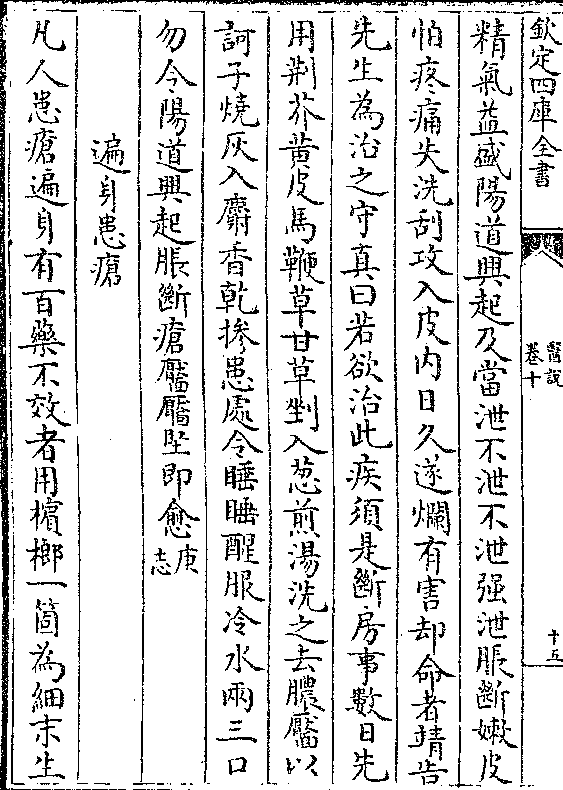 欽定四庫全書
醫說
卷十
十五
精氣益盛陽道興起及當泄不泄不泄强泄脹斷嫩皮
怕疼痛失洗刮攻入皮内日久遂爛有害却命者靖告
先生為治之守真曰若欲治此疾須是斷房事數日先
用荆芥黄皮馬鞭草甘草剉入葱煎湯洗之去膿靨以
訶子燒灰入麝香乾摻患處令睡睡醒服冷水兩三口
勿令陽道興起脹斷瘡靨靨坠即愈庚志
遍身患瘡
凡人患瘡遍身有百藥不效者用檳榔一箇為細末生